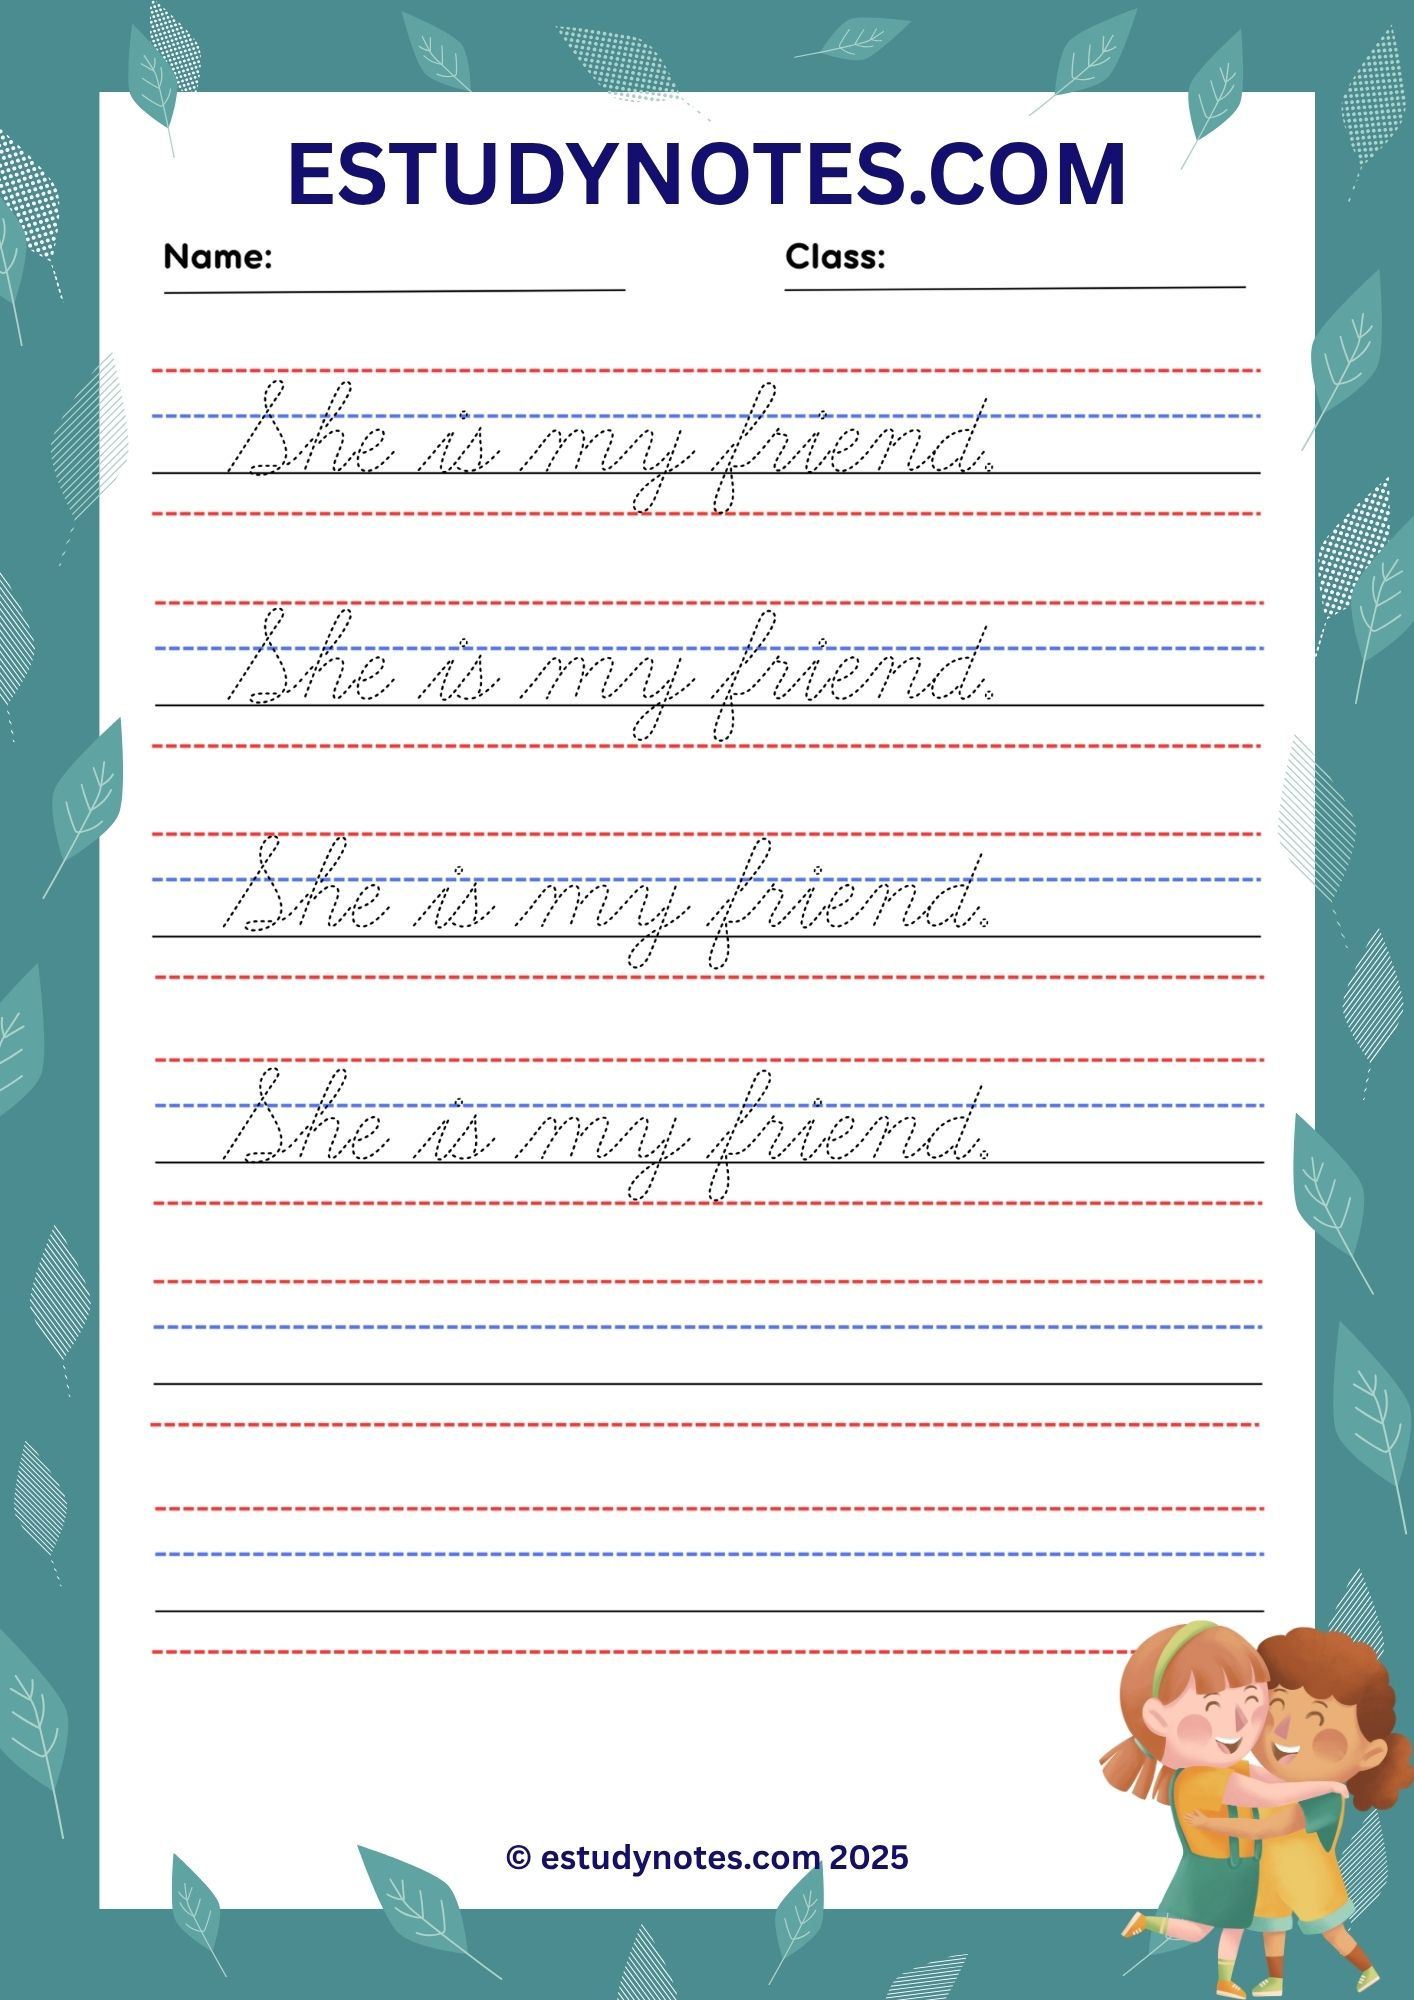 ESTUDYNOTES.COM
Name: Class:
She is my friend.
She is my friend.
She is my friend.
She is my friend.
© estudynotes.com 2025